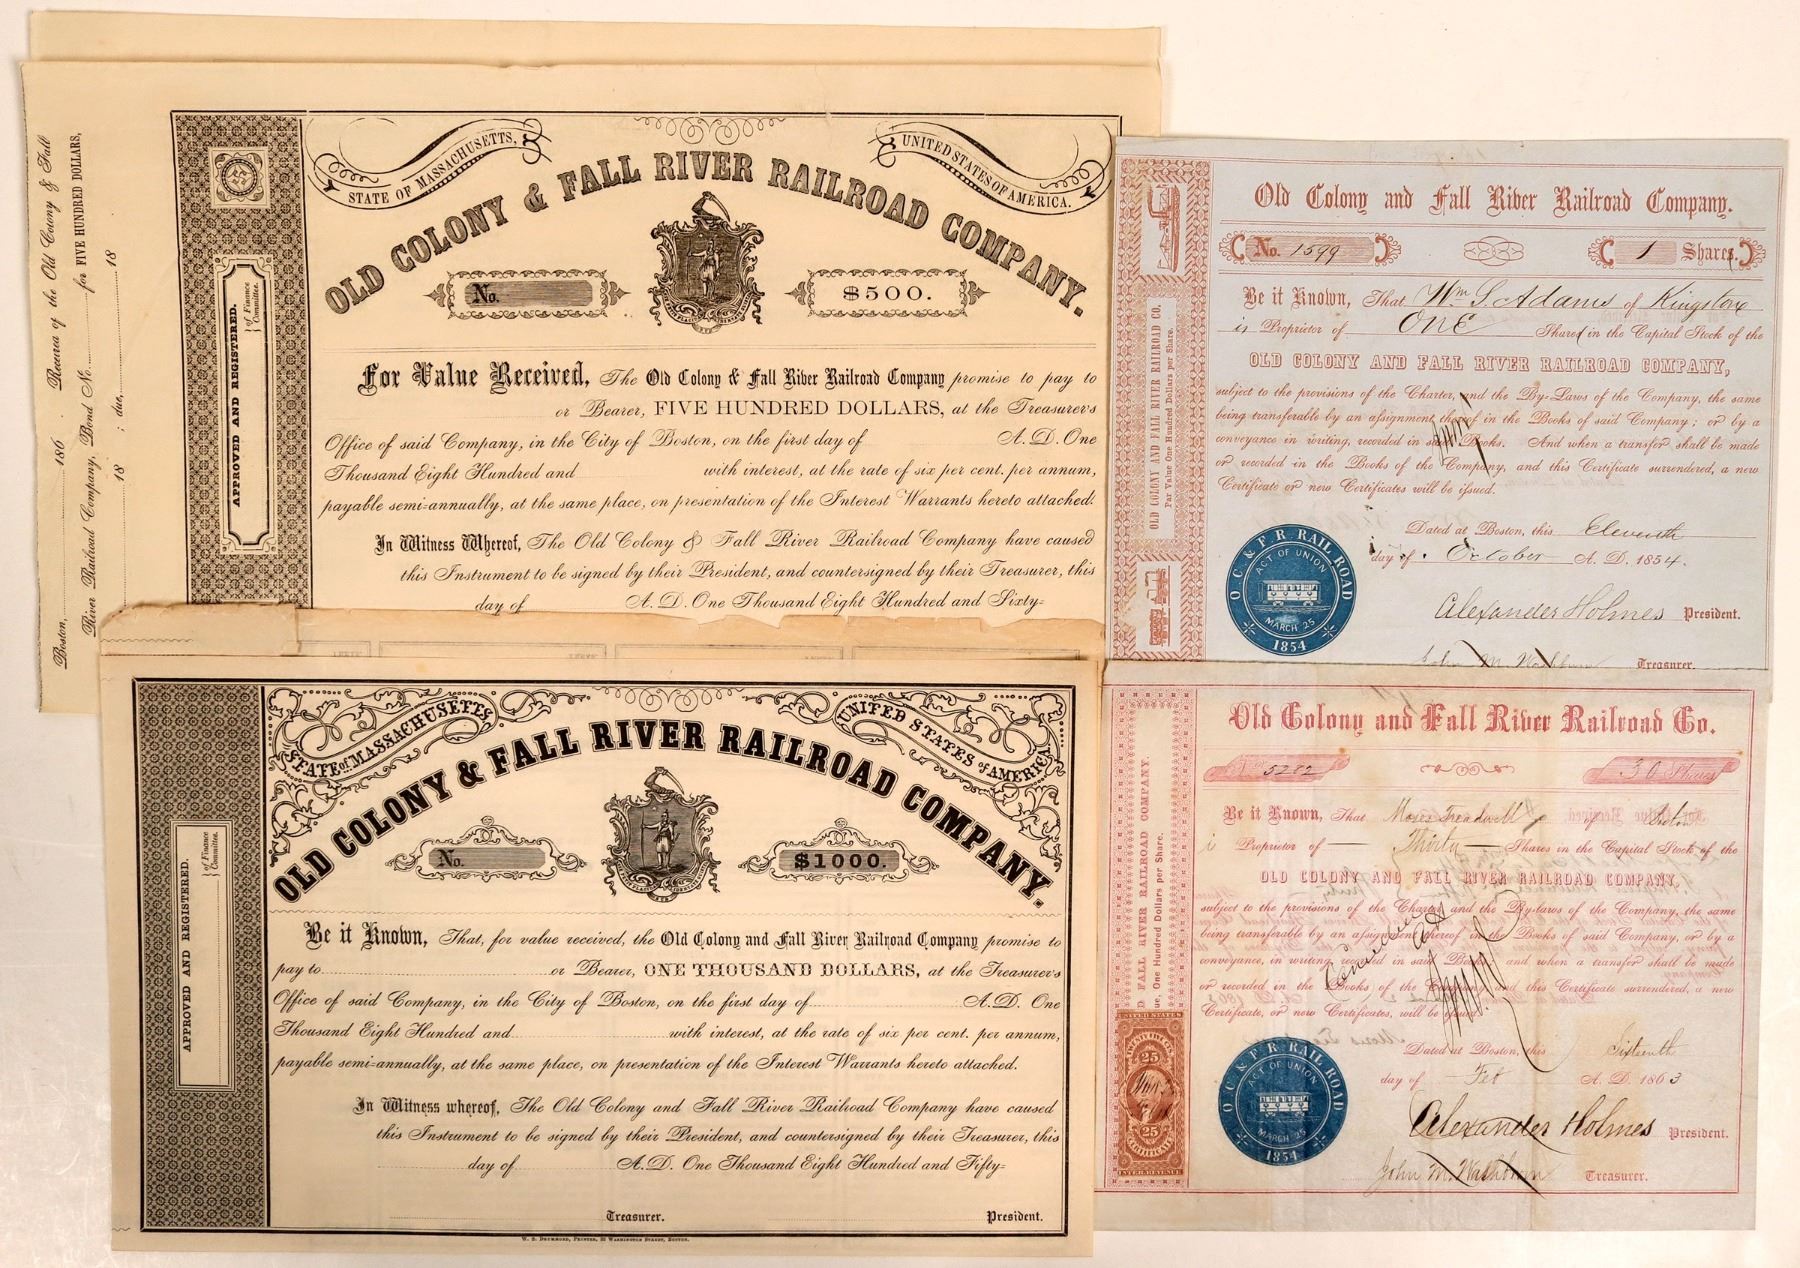 Boston, 186 . Received of the Old Colony & Fall
River Railroad Company, Bond No. for FIVE HUNDRED DOLLARS,
18 ; due, 18
APPROVED AND REGISTERED.
of Finance
Committee.
STATE OF MASSACHUSETTS,
UNITED STATES OF AMERICA.
OLD COLONY & FALL RIVER RAILROAD COMPANY.
No.
$500.
For Value Received, The Old Colony & Fall River Railroad Company promise to pay to
or Bearer, FIVE HUNDRED DOLLARS, at the Treasurer's
Office of said Company, in the City of Boston, on the first day of A. D. One
Thousand Eight Hundred and with interest, at the rate of six per cent. per annum,
payable semi-annually, at the same place, on presentation of the Interest Warrants hereto attached.
In Witness Whereof, The Old Colony & Fall River Railroad Company have caused
this Instrument to be signed by their President, and countersigned by their Treasurer, this
day of A. D. One Thousand Eight Hundred and Sixty-
APPROVED AND REGISTERED.
of Finance
Committee.
STATE of MASSACHUSETTS
UNITED STATES of AMERICA
OLD COLONY & FALL RIVER RAILROAD COMPANY.
No.
$1000.
Be it Known, That, for value received, the Old Colony and Fall River Railroad Company promise to
pay to or Bearer, ONE THOUSAND DOLLARS, at the Treasurer's
Office of said Company, in the City of Boston, on the first day of A. D. One
Thousand Eight Hundred and with interest, at the rate of six per cent. per annum,
payable semi-annually, at the same place, on presentation of the Interest Warrants hereto attached.
In Witness whereof, The Old Colony and Fall River Railroad Company have caused
this Instrument to be signed by their President, and countersigned by their Treasurer, this
day of A. D. One Thousand Eight Hundred and Fifty-
Treasurer. President.
W. S. DRUMMOND, PRINTER, WASHINGTON STREET, BOSTON.
OLD COLONY AND FALL RIVER RAILROAD CO.
Par Value One Hundred Dollars per Share.
Old Colony and Fall River Railroad Company.
No. 1599
1 Shares.
Be it Known, That Wm S. Adams of Kingston
is Proprietor of ONE Shares in the Capital Stock of the
OLD COLONY AND FALL RIVER RAILROAD COMPANY,
subject to the provisions of the Charter, and the By-Laws of the Company, the same
being transferable by an assignment thereof in the Books of said Company; or by a
conveyance in writing, recorded in said Books. And when a transfer shall be made
or recorded in the Books of the Company, and this Certificate surrendered, a new
Certificate or new Certificates will be issued.
Dated at Boston, this Eleventh
day of October A. D. 1854.
O. C. & F. R. RAIL ROAD
ACT OF UNION
MARCH 25
1854
Alexander Holmes President.
John M. Washburn Treasurer.
D FALL RIVER RAILROAD COMPANY.
ue, One Hundred Dollars per Share.
Old Colony and Fall River Railroad Co.
5282
30 Shares
Be it Known, That Moses Treadwell
Proprietor of Thirty Shares in the Capital Stock of the
OLD COLONY AND FALL RIVER RAILROAD COMPANY,
subject to the provisions of the Charter and the By-laws of the Company, the same
being transferable by an assignment thereof in the Books of said Company, or by a
conveyance, in writing, recorded in said Books; and when a transfer shall be made
or recorded in the Books of the Company and this Certificate surrendered, a new
Certificate, or new Certificates, will be issued.
Dated at Boston, this Sixteenth
day of Feb A. D. 1863
O. C. & F. R. RAIL ROAD
ACT OF UNION
MARCH 25
1854
Alexander Holmes President.
John M. Washburn Treasurer.
UNITED STATES
25
25
CERTIFICATE
INTER. REVENUE